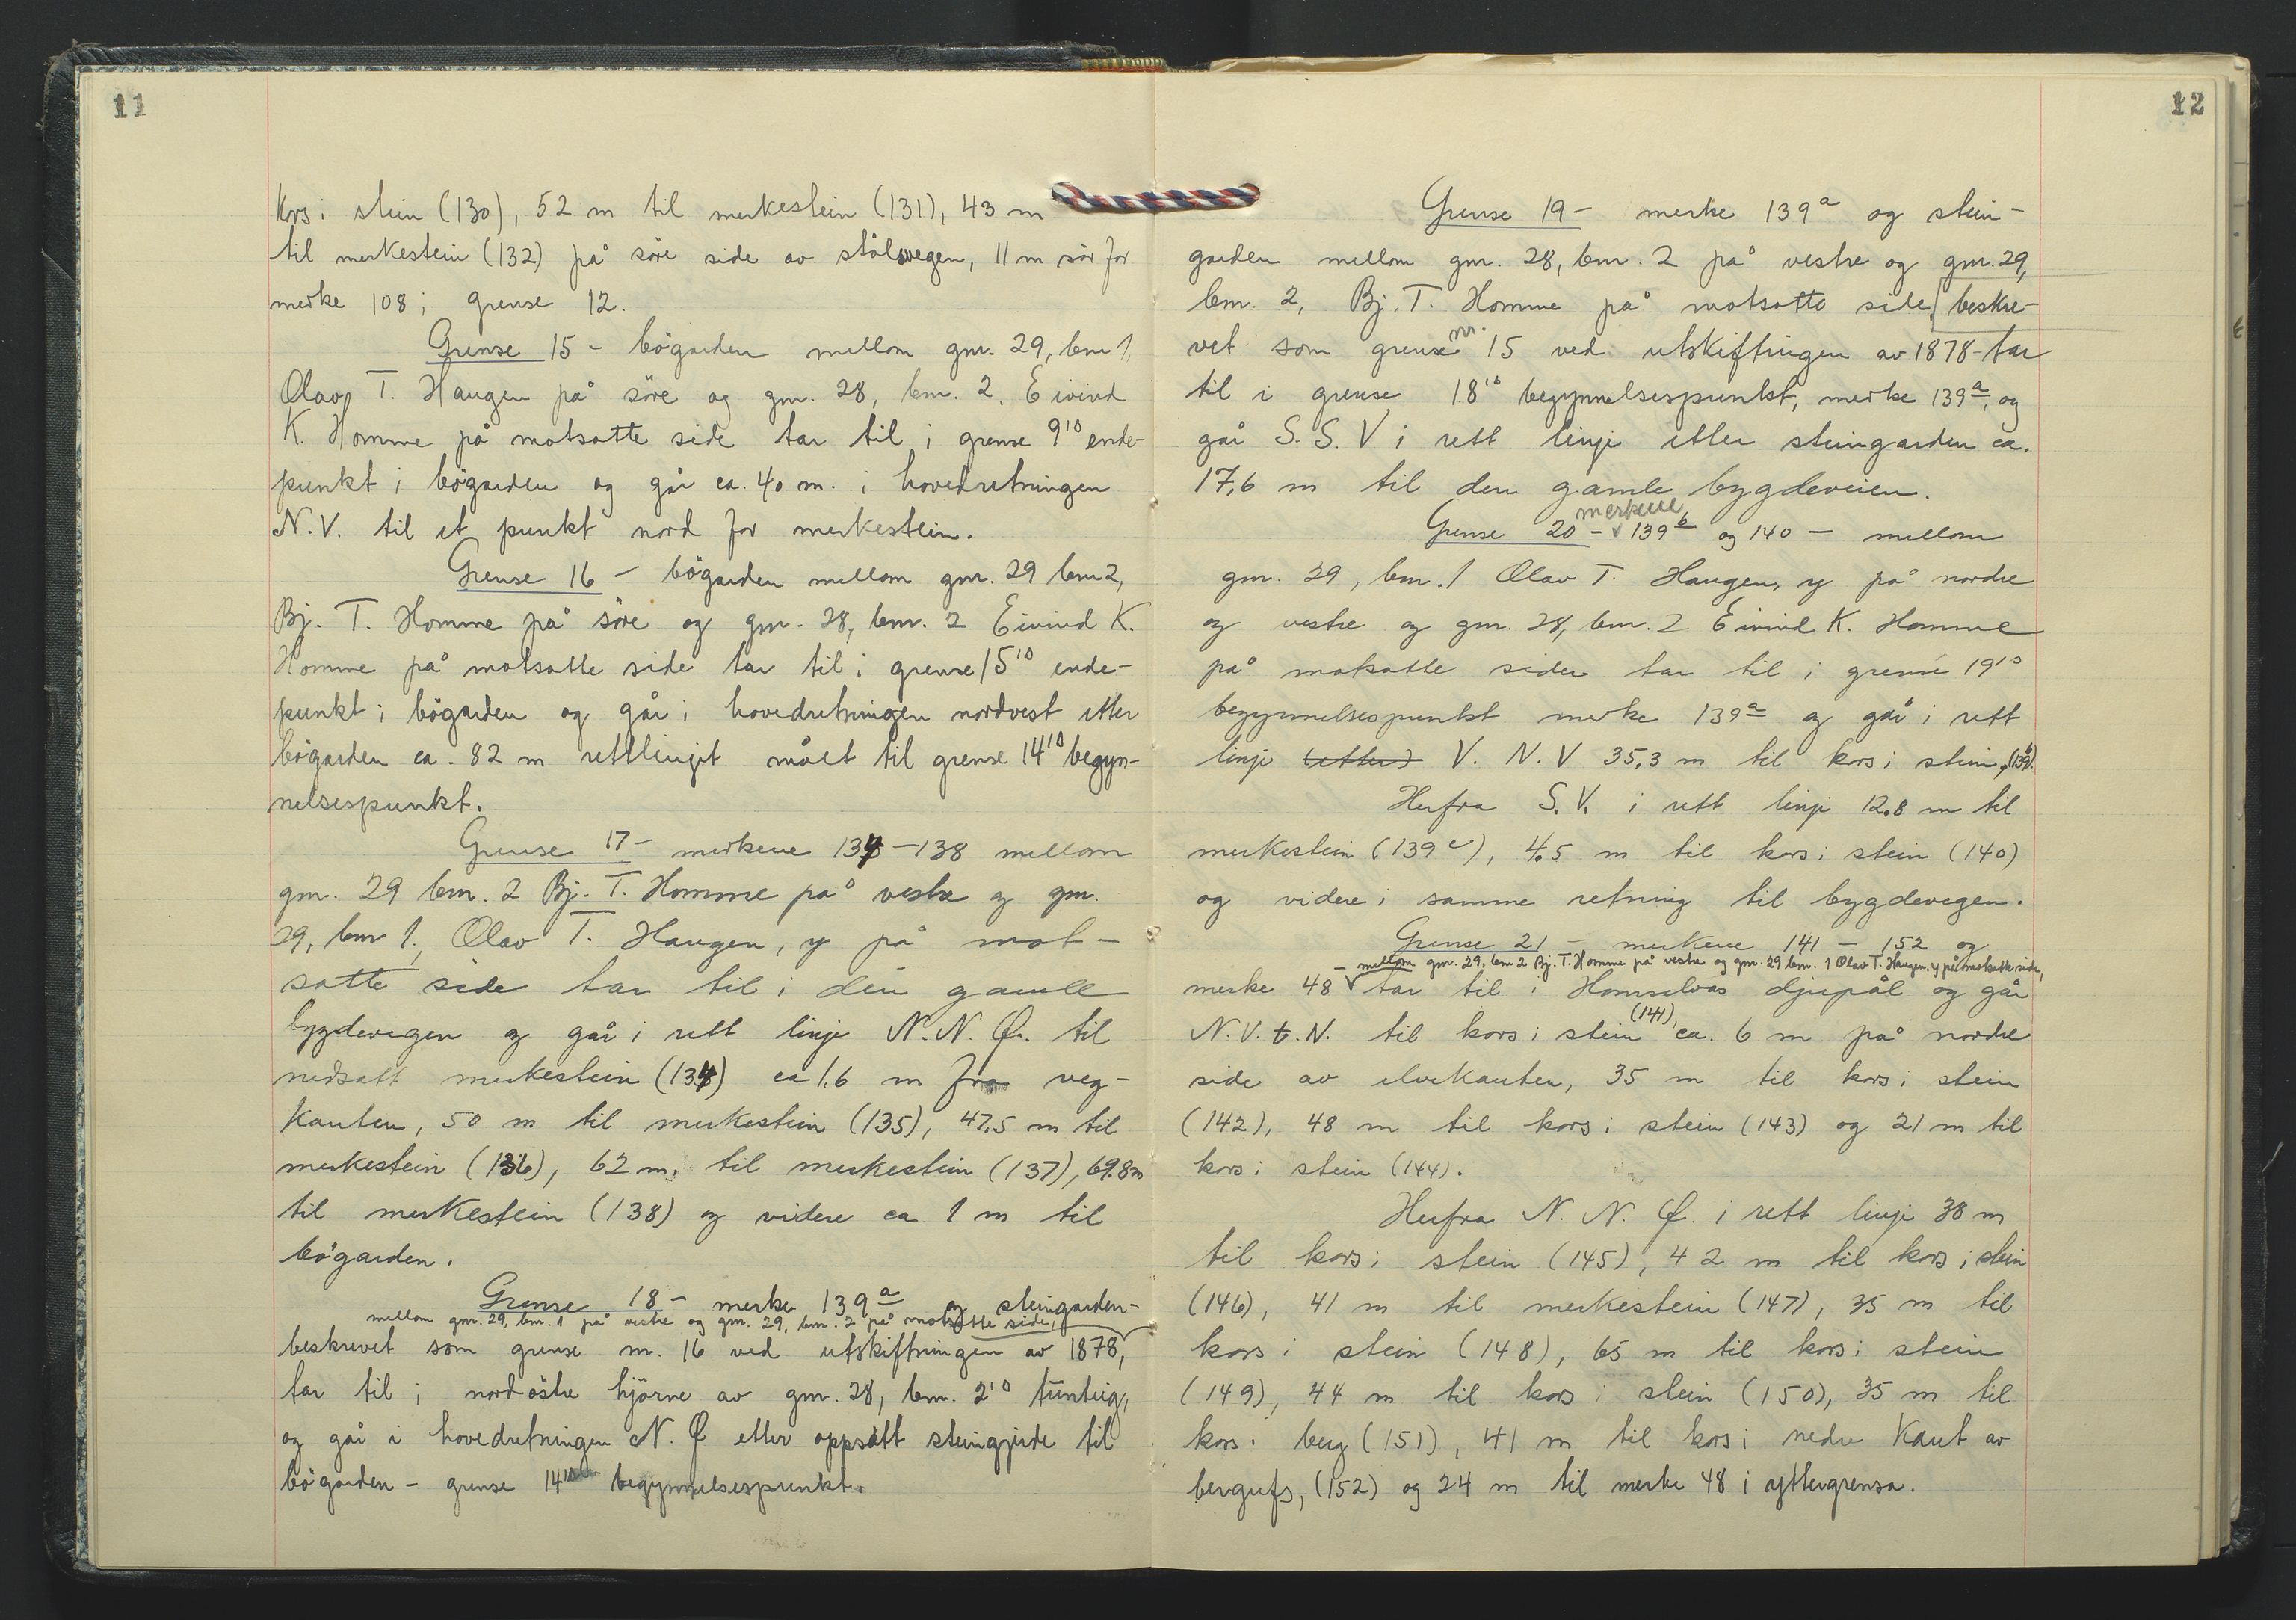 11
kors i stein (130), 52 m til merkestein (131), 43 m
til merkestein (132) på søre side av stølsvegen, 11 m sör for
merke 108 i grense 12.
Grense 15 - bögarden mellom gnr. 29, bnr 1,
Olav T. Haugen på söre og gnr. 28, bnr. 2, Eivind
K. Homme på motsatte side tar til i grense 9's ende-
punkt i bögarden og går ca. 40 m. i hovedretningen
N.V. til et punkt nord for merkestein.
Grense 16 - bögarden mellom gnr. 29 bnr 2,
Bj. T. Homme på söre og gnr. 28, bnr. 2 Eivind K.
Homme på motsatte side tar til i grense 15's ende-
punkt i bögarden og går i hovedretningen nordvest etter
bögarden ca. 82 m rettlinjet målt til grense 14's begyn-
nelsespunkt.
Grense 17 - merkene 134 - 138 mellom
gnr. 29 bnr. 2 Bj. T. Homme på vestre og gnr.
29, bnr 1, Olav T. Haugen, y på mot-
satte side tar til i den gamle
bygdevegen og går i rett linje N. N. Ø. til
nedsatt merkestein (134) ca 1,6 m fra veg-
kanten, 50 m til merkestein (135), 47,5 m til
merkestein (136), 62 m. til merkestein (137), 69.8 m
til merkestein (138) og videre ca 1 m til
bögarden.
Grense 18 - merke 139a og steingarden -
mellom gnr. 29, bnr. 1 på vestre og gnr. 29, bnr. 2 på motsatte side,
beskrevet som grense nr. 16 ved utskiftningen av 1878,
tar til i nordöstre hjörne av gnr. 28, bnr. 2's tunteig,
og går i hovedretningen N. Ø etter oppsatt steingjerde til
bögarden - grense 14's begynnelsespunkt.
12
Grense 19 - merke 139a og stein-
garden mellom gnr. 28, bnr. 2 på vestre og gnr. 29,
bnr. 2, Bj. T. Homme på motsatte side, beskre-
nr.
vet som grense 15 ved utskiftningen av 1878 - tar
til i grense 18's begynnelsespunkt, merke 139a, og
går S. S. V i rett linje etter steingarden ca.
17,6 m til den gamle bygdeveien.
merkene
Grense 20 - 139b og 140 - mellom
gnr. 29, bnr. 1 Olav T. Haugen, y på nordre
og vestre og gnr. 28, bnr. 2 Eivind K. Homme
på motsatte siden tar til i grense 19's
begynnelsespunkt merke 139a og går i rett
linje (etter) V. N. V 35,3 m til kors i stein, (139b).
Herfra S. V. i rett linje 12.8 m til
merkestein (139c), 4,5 m til kors i stein (140)
og videre i samme retning til bygdevegen.
Grense 21 - merkene 141 - 152 og
mellom gnr. 29, bnr 2 Bj. T. Homme på vestre og gnr. 29 bnr. 1 Olav T. Haugen, y på motsatte side,
merke 48 - tar til i Homselvas djupål og går
(141),
N. V. t. N. til kors i stein ca. 6 m på nordre
side av elvekanten, 35 m til kors i stein
(142), 48 m til kors i stein (143) og 21 m til
kors i stein (144).
Herfra N. N. Ø. i rett linje 38 m
til kors i stein (145), 42 m til kors i stein
(146), 41 m til merkestein (147), 35 m til
kors i stein (148), 65 m til kors i stein
(149), 44 m til kors i stein (150), 35 m til
kors i berg (151), 41 m til kors i nedre kant av
bergufs, (152) og 24 m til merke 48 i yttergrensa.